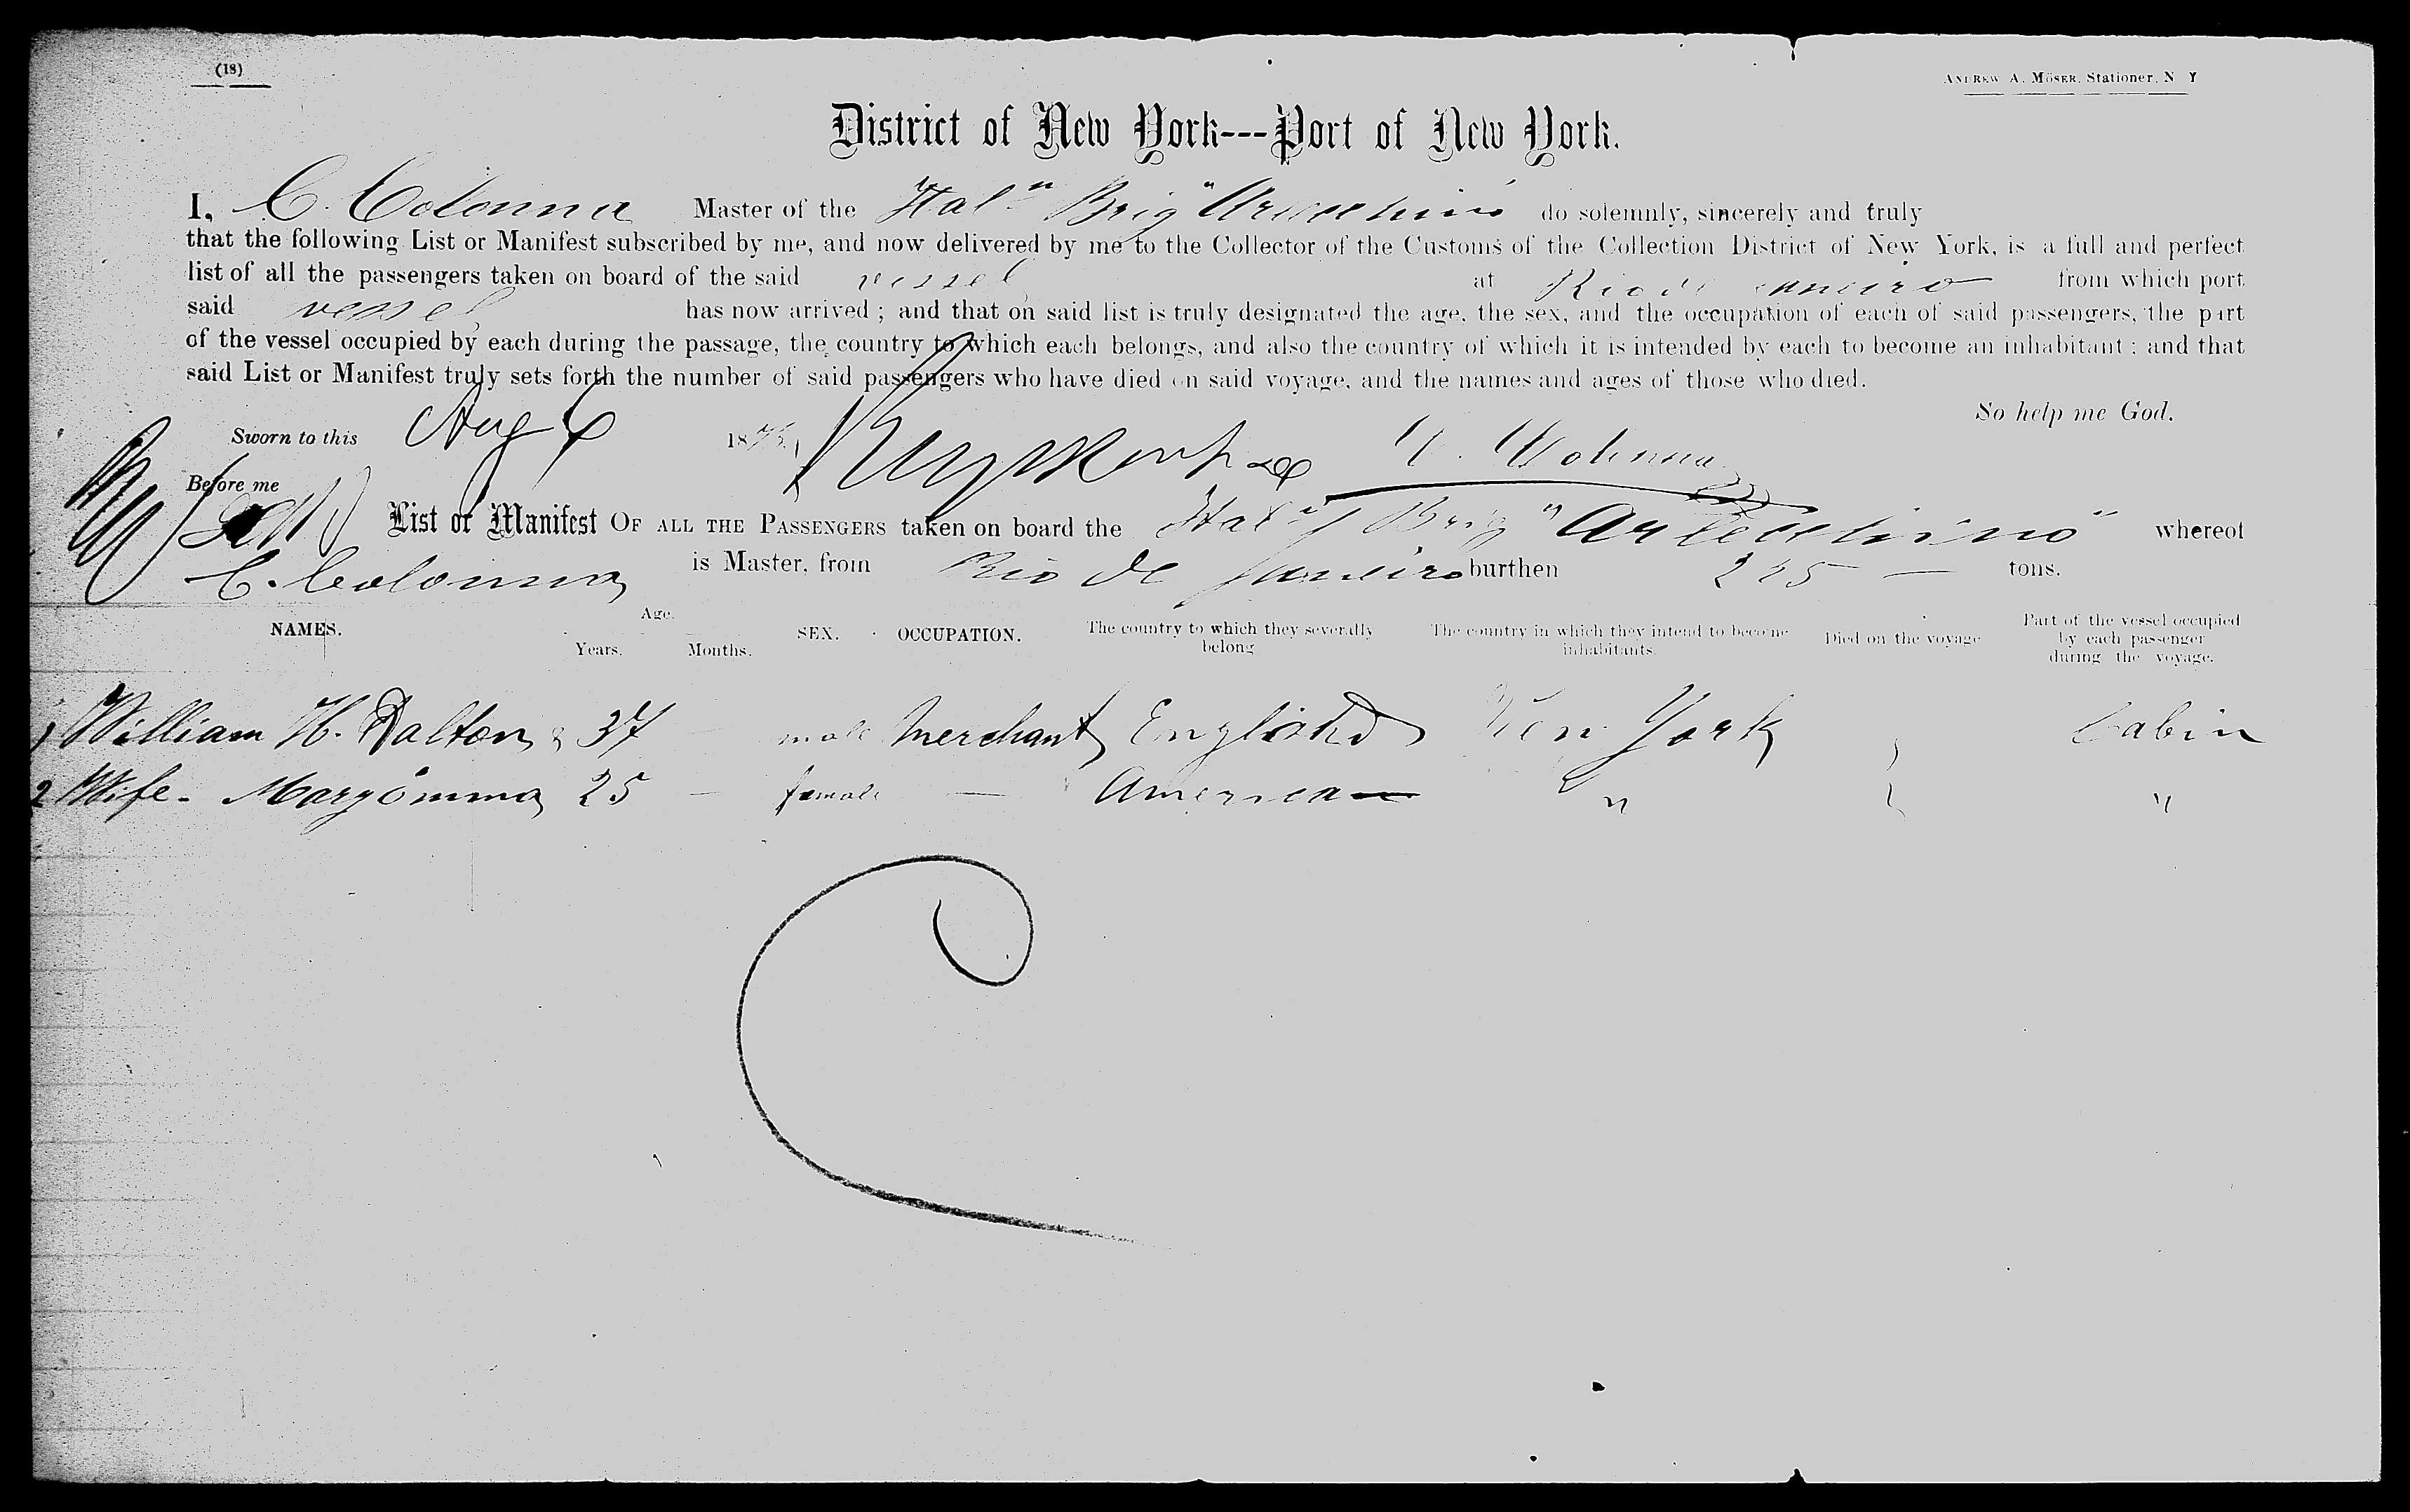 (18)
ANDREW A. MÖSER, Stationer, N Y
District of New York---Port of New York.
I, C. Colonna Master of the Ital'n Brig " do solemnly, sincerely and truly
that the following List or Manifest subscribed by me, and now delivered by me to the Collector of the Customs of the Collection District of New York, is a full and perfect
list of all the passengers taken on board of the said vessel at Rio de Janeiro from which port
said vessel has now arrived ; and that on said list is truly designated the age, the sex, and the occupation of each of said passengers, the part
of the vessel occupied by each during the passage, the country to which each belongs, and also the country of which it is intended by each to become an inhabitant ; and that
said List or Manifest truly sets forth the number of said passengers who have died on said voyage, and the names and ages of those who died.
So help me God.
Sworn to this Aug 6 18 C. Colonna
Before me
List or Manifest OF ALL THE PASSENGERS taken on board the Ital'n Brig " " whereof
C. Colonna is Master, from Rio de Janeiro burthen tons.
NAMES. Age. Years. Months. SEX. OCCUPATION. The country to which they severally belong The country in which they intend to become inhabitants. Died on the voyage Part of the vessel occupied by each passenger during the voyage.
1 William H. Dalton & 37 male Merchant England New York Cabin
2 Wife - Mary Emma 25 — female — America " "